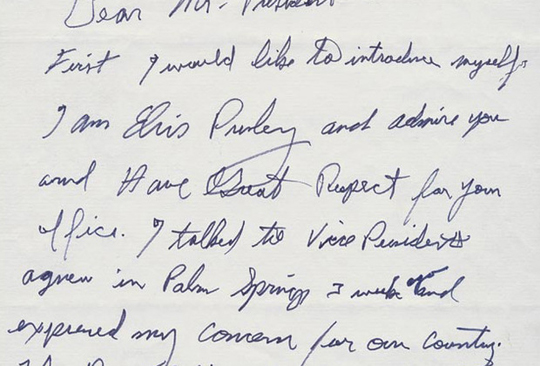 Dear Mr. President
First I would like to introduce myself.
I am Elvis Presley and admire you
and Have Great Respect for your
office. I talked to Vice President
agnew in Palm Springs I week ago and
expressed my concern for our country.